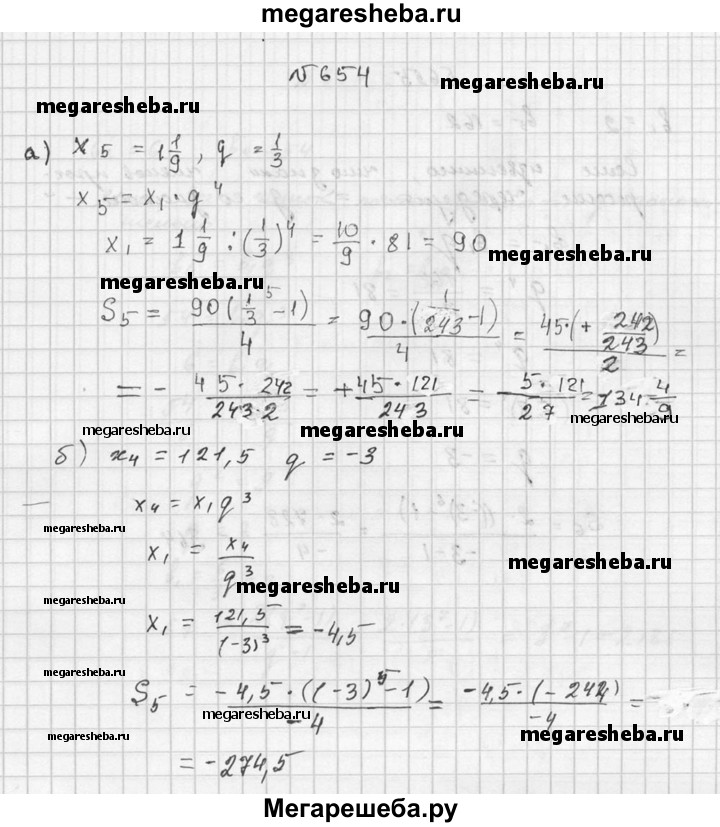 megaresheba.ru
№654
megaresheba.ru
megaresheba.ru
а) x₅ = 1 1/9, q = 1/3
x₅ = x₁ · q⁴
x₁ = 1 1/9 : (1/3)⁴ = 10/9 · 81 = 90
megaresheba.ru
megaresheba.ru
S₅ = 90(1/3⁵ - 1)/4 = 90·(1/243 - 1)/4 = 45·(+ 242/243)/2 =
= - 45·242/243·2 = +45·121/243 = - 5·121/27 = 134 4/9
megaresheba.ru
megaresheba.ru
megaresheba.ru
б) x₄ = 121,5 q = -3
x₄ = x₁q³
megaresheba.ru
x₁ = x₄/q³
megaresheba.ru
megaresheba.ru
megaresheba.ru
x₁ = 121,5/(-3)³ = -4,5
megaresheba.ru
S₅ = -4,5·((-3)⁵-1)/-4 = -4,5·(-244)/-4 =
megaresheba.ru
megaresheba.ru
megaresheba.ru
= -274,5
Мегарешеба.ру